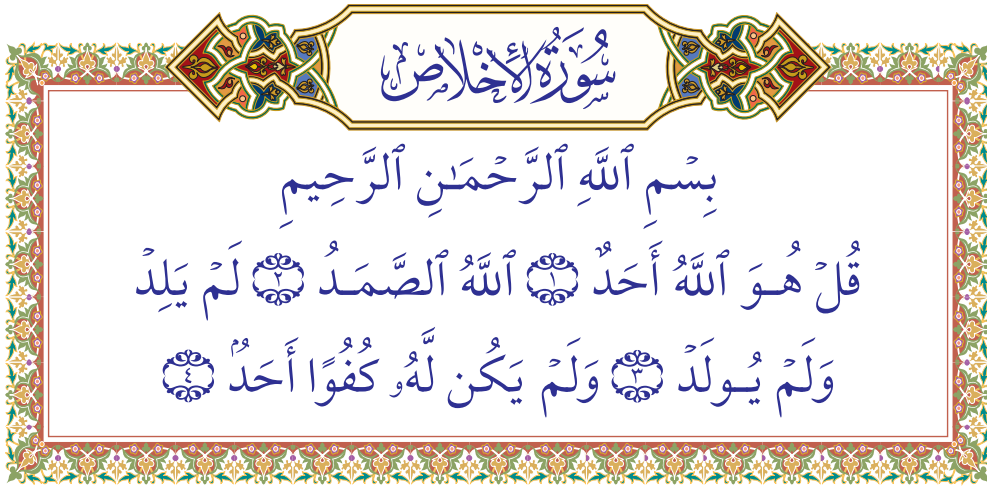 سُورَةُ الْإِخْلَاصِ
بِسْمِ ٱللَّهِ ٱلرَّحْمَـٰنِ ٱلرَّحِيمِ
قُلْ هُـوَ ٱللَّهُ أَحَدٌ ١ ٱللَّهُ ٱلصَّمَـدُ ٢ لَمْ يَلِدْ
وَلَمْ يُـولَدْ ٣ وَلَمْ يَكُن لَّهُۥ كُفُوًا أَحَدٌۢ ٤